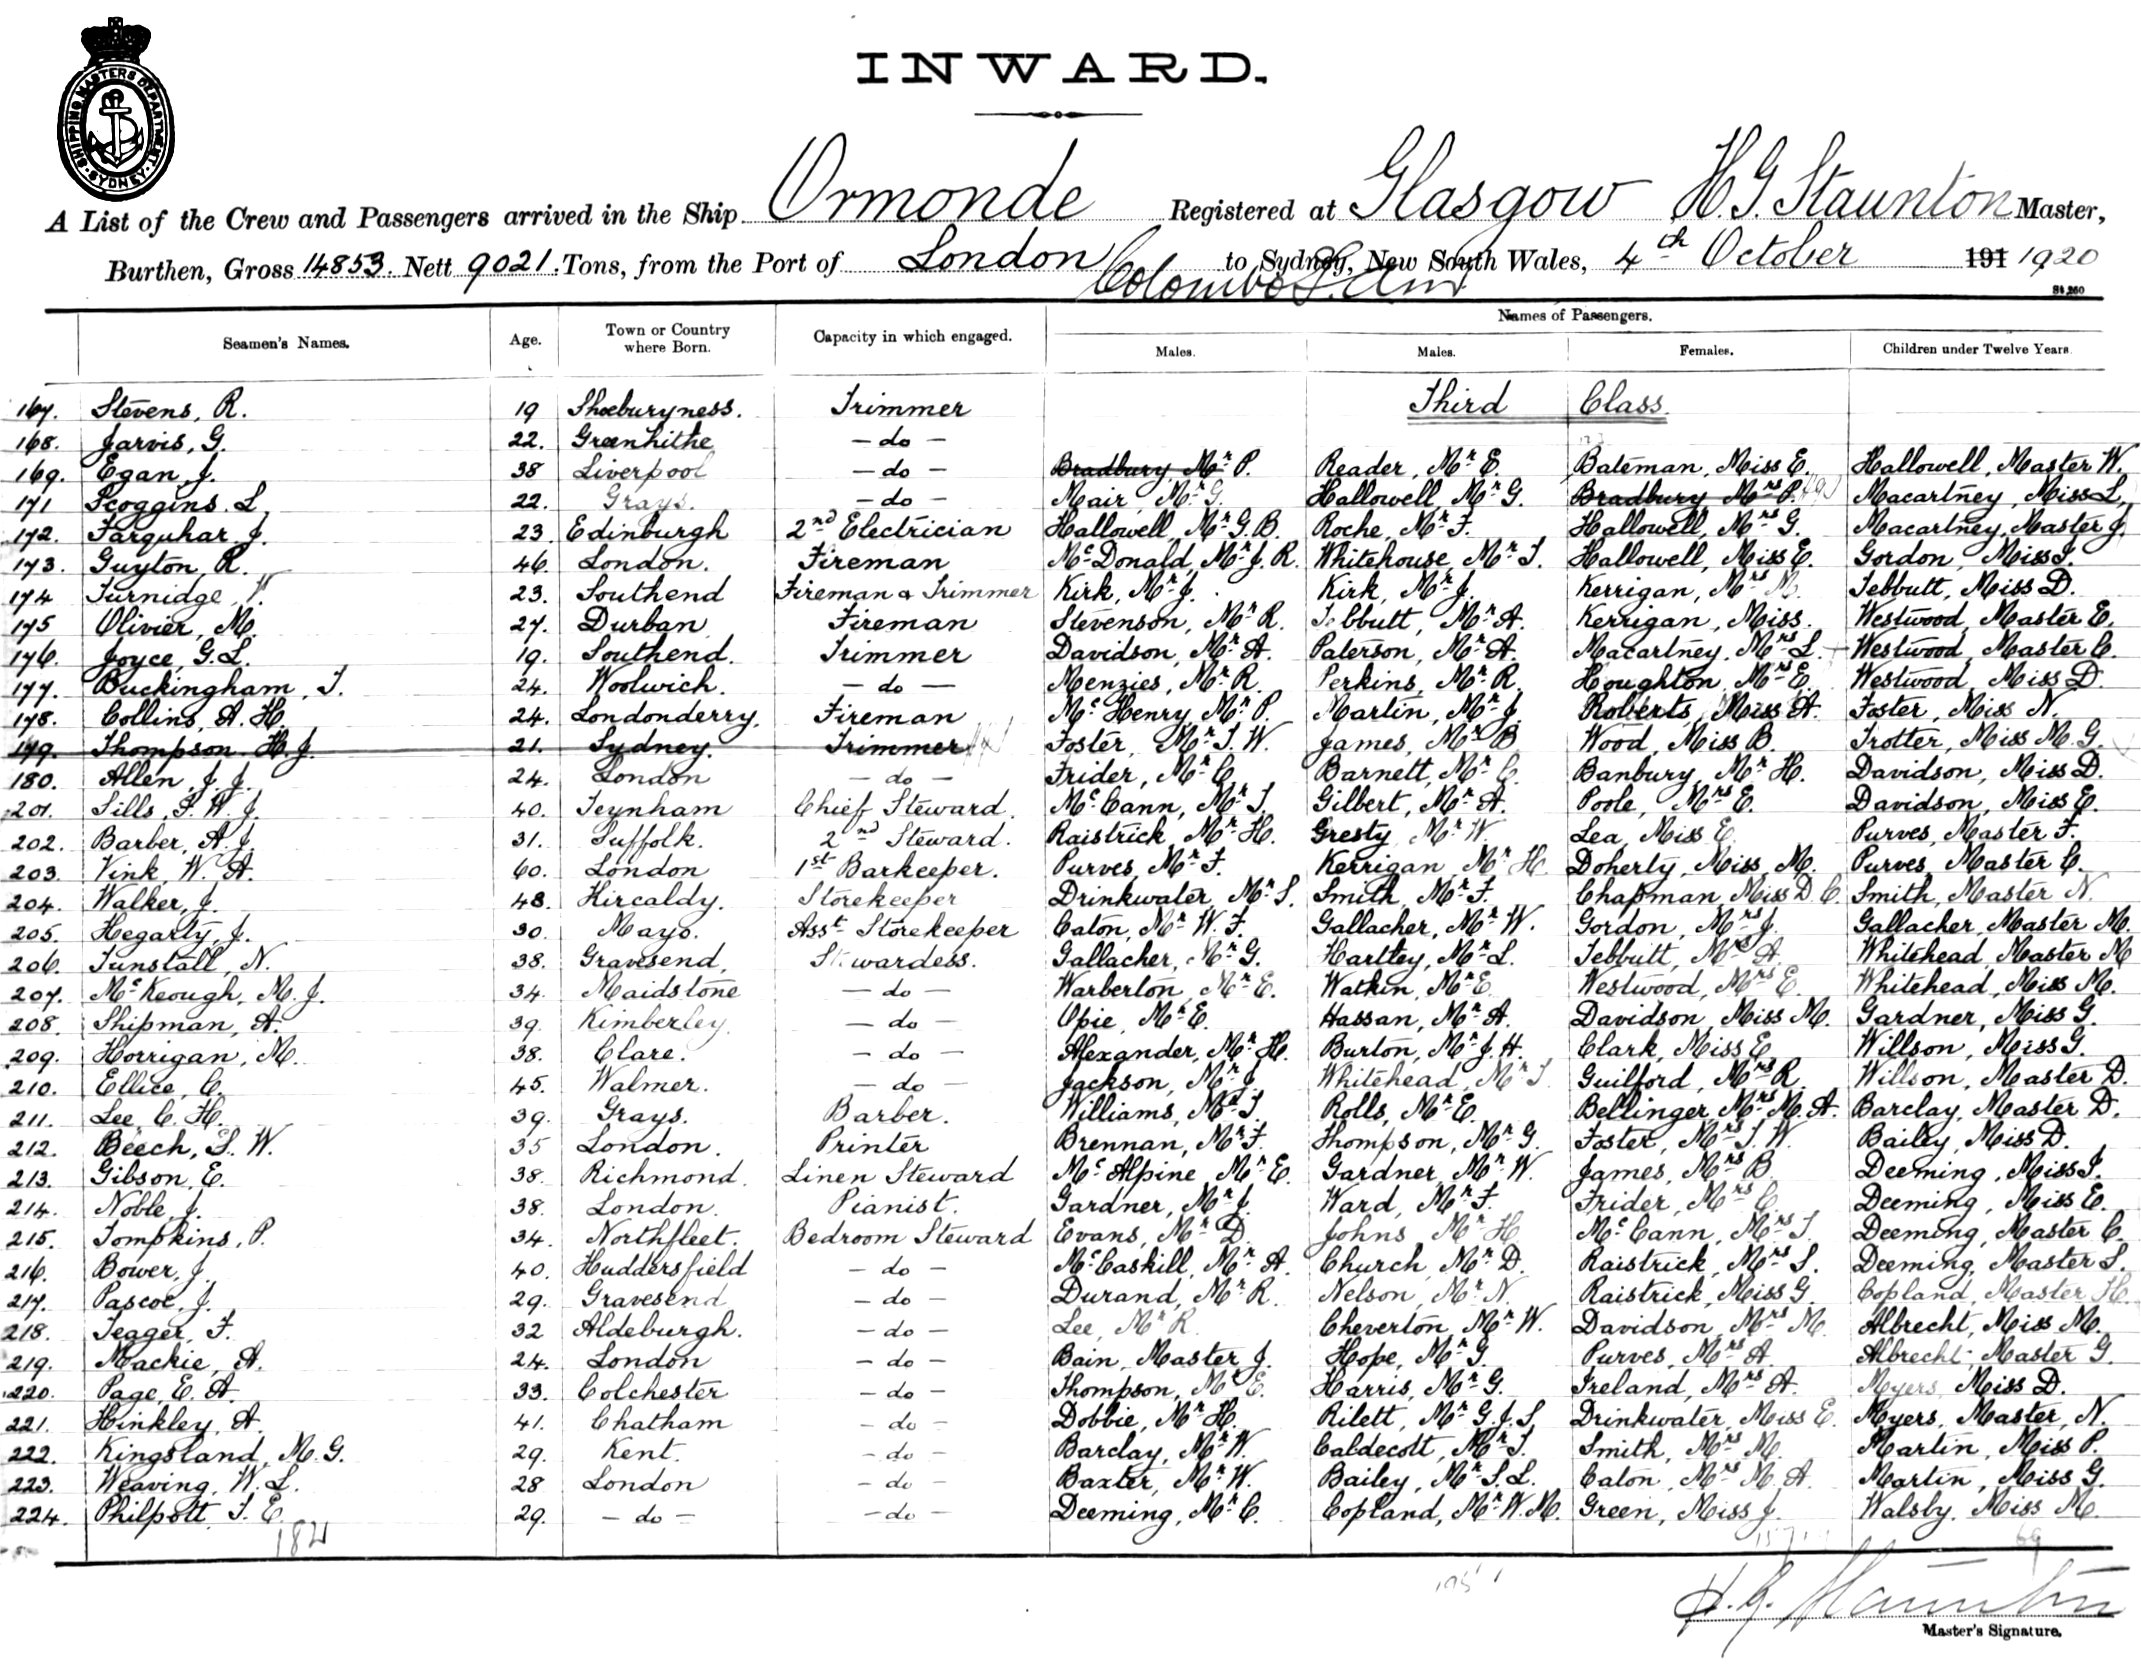 SHIPPING MASTERS DEPARTMENT SYDNEY
INWARD.
A List of the Crew and Passengers arrived in the Ship Ormonde Registered at Glasgow H. G. Staunton Master,
Burthen, Gross 14853. Nett 9021. Tons, from the Port of London to Sydney, New South Wales, 4th October 191 1920
Colombo
Names of Passengers.
Seamen's Names. Age. Town or Country where Born. Capacity in which engaged. Males. Males. Females. Children under Twelve Years.
167. Stevens, R. 19 Shoeburyness. Trimmer Third Class.
168. Jarvis, G. 22. Greenhithe - do -
169. Egan, J. 38 Liverpool - do - Bradbury Mr P. Reader, Mr E. Bateman, Miss E. Hallowell, Master W.
171 Scoggins. L 22. Grays. - do - Mair, Mr G. Hallowell, Mr G. Bradbury Mrs P. Macartney, Miss L.
172. Farquhar. J. 23. Edinburgh 2nd Electrician Hallowell, Mr G. B. Roche, Mr F. Hallowell, Mrs G. Macartney, Master J.
173. Guyton, R. 46. London. Fireman McDonald, Mr J. R. Whitehouse, Mr T. Hallowell, Miss E. Gordon, Miss J.
174 Turnidge, 23. Southend Fireman & Trimmer Kirk, Mr J. Kirk, Mr J. Kerrigan, Mrs Tebbutt, Miss D.
175 Olivier, M. 27. Durban Fireman Stevenson, Mr R. Tebbutt, Mr A. Kerrigan, Miss. Westwood, Master E.
176. Joyce, G. L. 19. Southend. Trimmer Davidson, Mr A. Paterson, Mr A. Macartney, Mrs L. Westwood, Master C.
177. Buckingham, T. 24. Woolwich. - do - Menzies, Mr R. Perkins, Mr R. Houghton Mrs E. Westwood, Miss D.
178. Collins, A. H. 24. Londonderry. Fireman McHenry Mr P. Martin, Mr J. Roberts, Miss A. Foster, Miss N.
179. Thompson H. J. 21. Sydney. Trimmer Foster, Mr T. W. James, Mr B Wood, Miss B. Trotter, Miss M. G.
180. Allen, J. J. 24. London - do - Frider, Mr C. Barnett, Mr C. Banbury, Mr H. Davidson, Miss D.
201. Sills, S. W. J. 40. Teynham Chief Steward. McCann, Mr T. Gilbert, Mr A. Poole, Mrs E. Davidson, Miss E.
202. Barber, A. J. 31. Suffolk. 2nd Steward. Raistrick Mr H. Gresty Mr W. Lea, Miss E. Purves, Master F.
203. Vink, W. A. 60. London 1st Barkeeper. Purves, Mr F. Kerrigan, Mr H. Doherty, Miss M. Purves, Master C.
204. Walker, J. 48. Kircaldy. Storekeeper Drinkwater, Mr S. Smith, Mr F. Chapman, Miss D C. Smith, Master N.
205. Hegarty, J. 30. Mayo. Asst Storekeeper Caton, Mr W. F. Gallacher, Mr W. Gordon, Mrs J. Gallacher, Master M.
206. Tunstall, N. 38. Gravesend. Stewardess. Gallacher, Mr G. Hartley, Mr L. Tebbutt, Mrs A. Whitehead, Master M
207. McKeough, M. J. 34. Maidstone - do - Warberton, Mr E. Watkin, Mr E. Westwood, Mrs E. Whitehead, Miss M.
208. Shipman, A. 39. Kimberley. - do - Opie, Mr E. Hassan, Mr A. Davidson, Miss M. Gardner, Miss G.
209. Horrigan, M. 38. Clare. - do - Alexander, Mr H. Burton, Mr J. H. Clark, Miss E. Willson, Miss G.
210. Ellice, C. 45. Walmer. - do - Jackson, Mr J. Whitehead, Mr T. Guilford, Mrs R. Willson, Master D.
211. Lee, C. H. 39. Grays. Barber. Williams, Mr T. Rolls, Mr E. Bellinger Mrs M. A. Barclay, Master D.
212. Beech, S. W. 35 London. Printer Brennan, Mr F. Thompson, Mr G. Foster, Mrs T. W. Bailey, Miss D.
213. Gibson, E. 38. Richmond. Linen Steward McAlpine Mr E. Gardner, Mr W. James, Mrs B. Deeming, Miss J.
214. Noble, J. 38. London. Pianist. Gardner, Mr J. Ward, Mr F. Frider, Mrs C. Deeming, Miss E.
215. Tompkins, P. 34. Northfleet. Bedroom Steward Evans, Mr D. Johns Mr H McCann, Mrs T. Deeming, Master C.
216. Bower, J. 40. Huddersfield - do - McCaskill, Mr A. Church, Mr D. Raistrick, Mrs S. Deeming, Master S.
217. Pascoe, J. 29. Gravesend - do - Durand, Mr R. Nelson, Mr N. Raistrick, Miss G. Copland, Master H.
218. Teager, F. 32 Aldeburgh. - do - Lee, Mr R. Cheverton, Mr W. Davidson, Mrs M. Albrecht, Miss M.
219. Mackie, A. 24. London - do - Bain, Master J. Hope, Mr G. Purves, Mrs A. Albrecht, Master G.
220. Page, E. A. 33. Colchester - do - Thompson, Mr E. Harris, Mr G. Ireland, Mrs A. Myers, Miss D.
221. Hinkley, A. 41. Chatham - do - Dobbie, Mr H. Rilett, Mr G. J. S. Drinkwater, Miss E. Myers, Master, N.
222. Kingsland, M. G. 29. Kent. - do - Barclay, Mr W. Caldecott, Mr T. Smith, Mrs M. Martin, Miss P.
223. Weaving, W. L. 28 London - do - Baxter, Mr W. Bailey, Mr S. L. Caton, Mrs M. A. Martin, Miss G.
224. Philpott, T. E. 29. - do - - do - Deeming, Mr C. Copland, Mr W. M. Green, Miss J. Walsby, Miss M.
69
H. G. Staunton
Master's Signature.